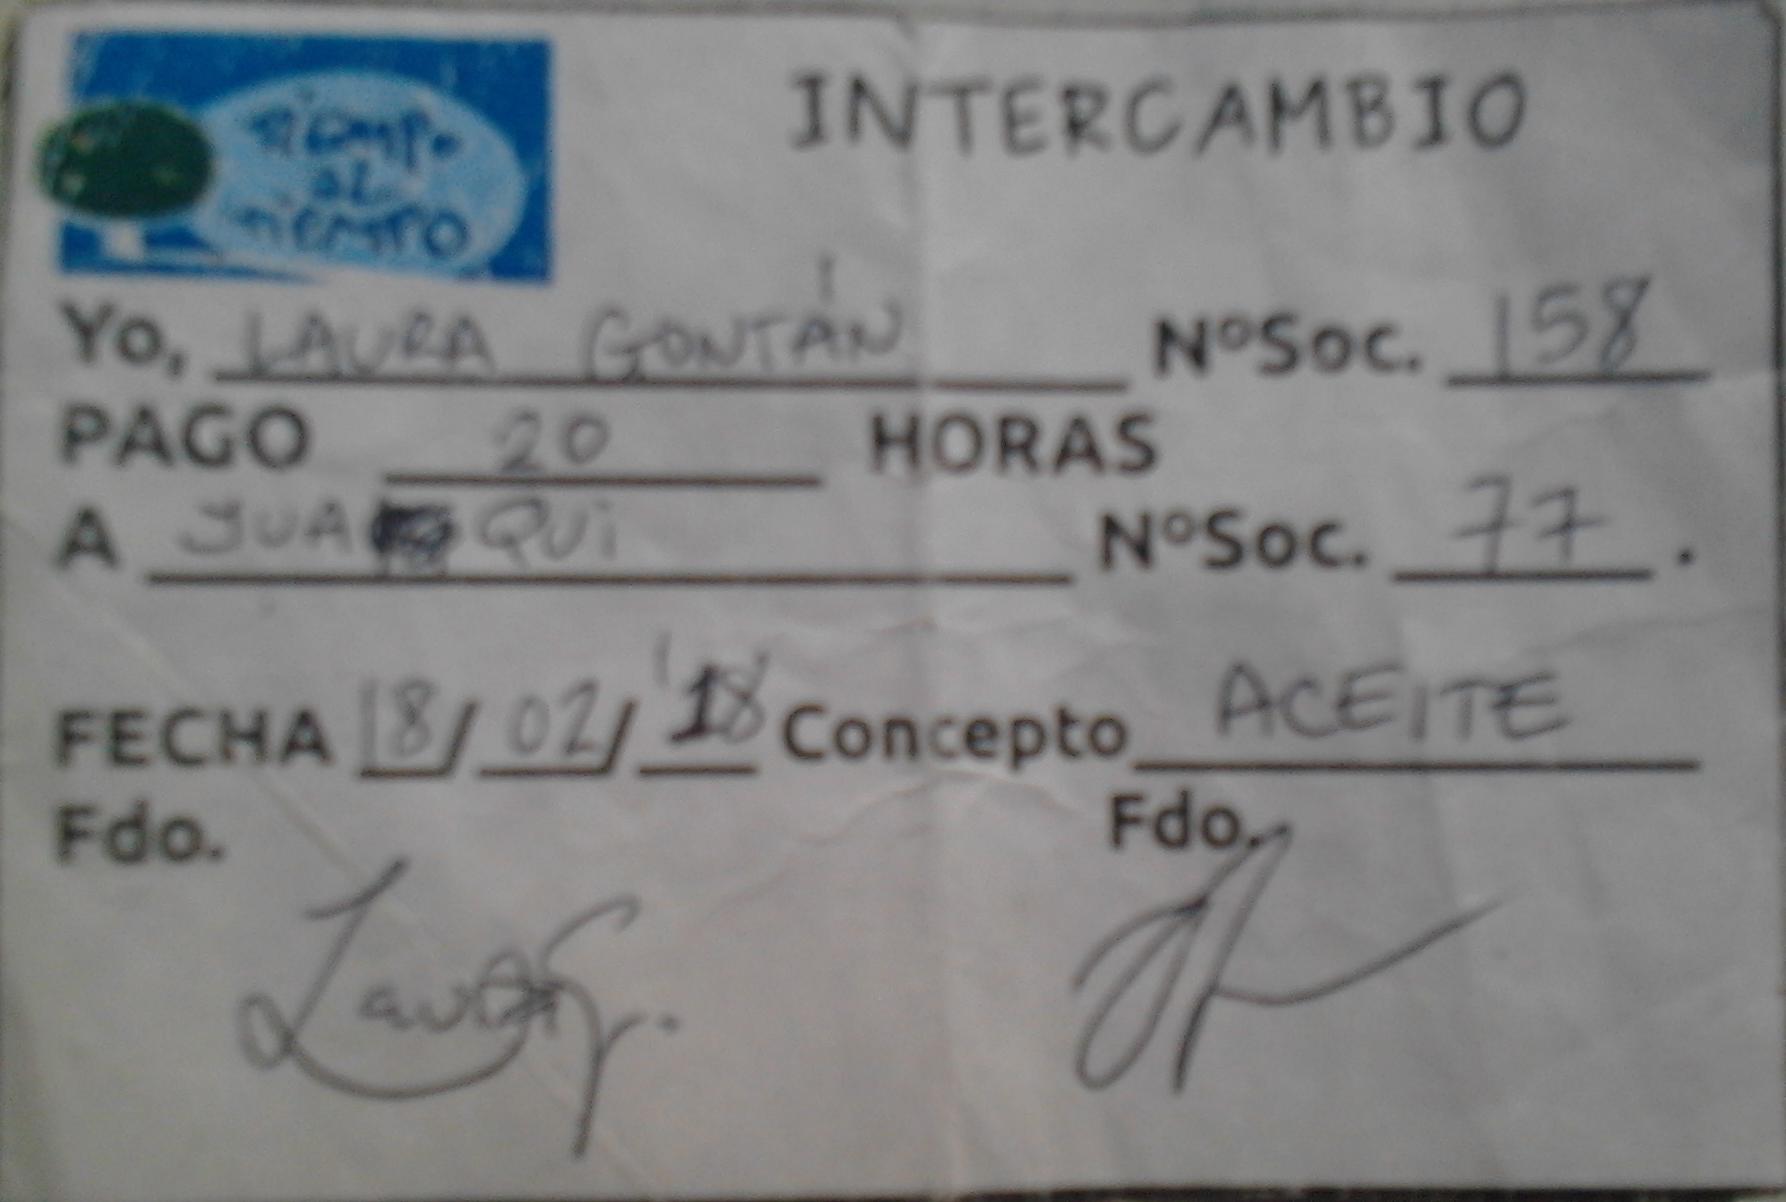 TIEMPO
AL
TIEMPO
INTERCAMBIO
Yo, LAURA GONTÁN NºSoc. 158
PAGO 20 HORAS
A JUA QUI NºSoc. 77.
FECHA 18/02/'18 Concepto ACEITE
Fdo. Fdo.
Laura G.